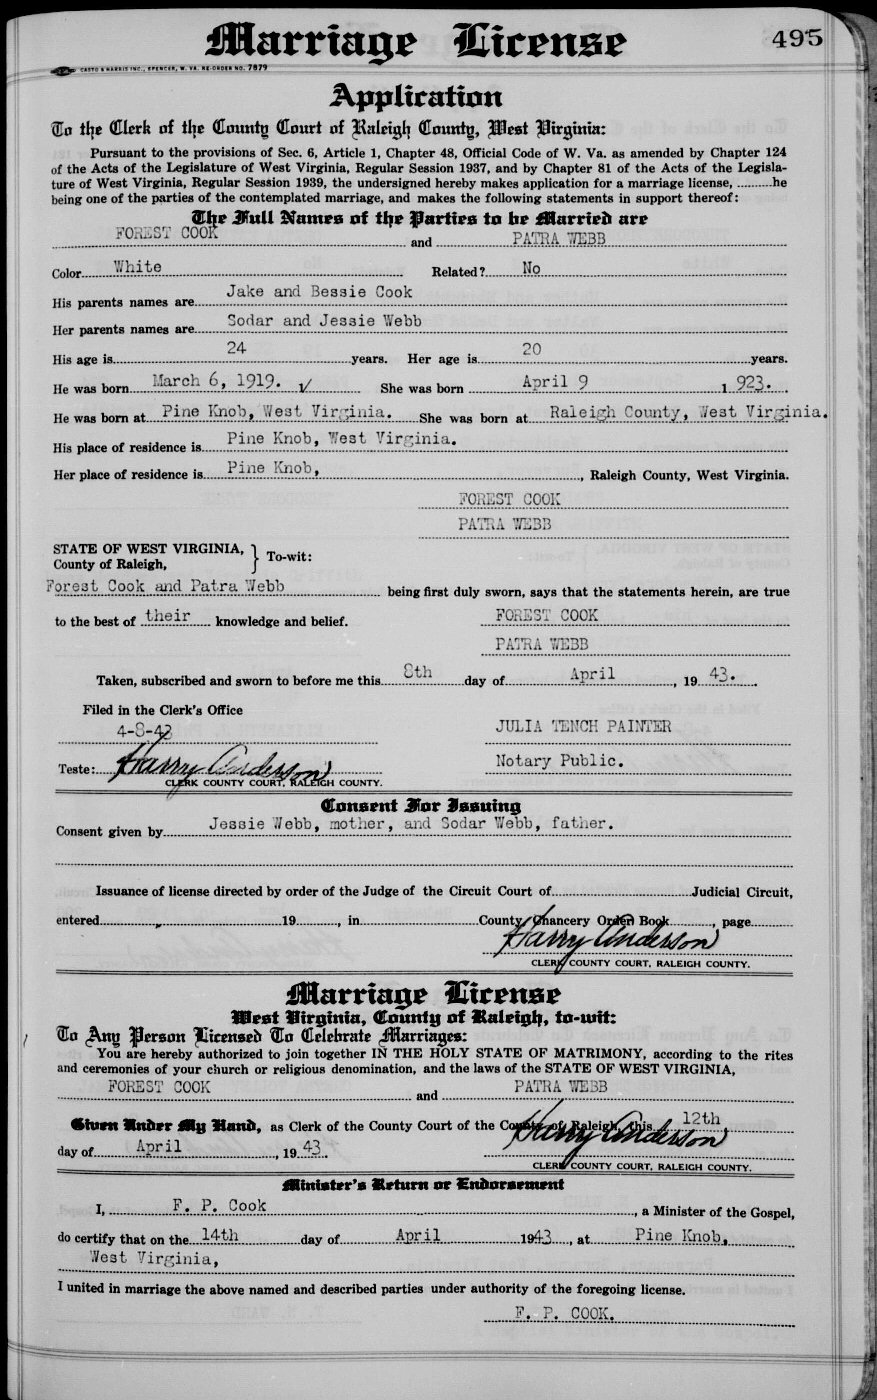 Marriage License 495
CASTO & HARRIS INC., SPENCER, W. VA. RE-ORDER NO. 7879
Application
To the Clerk of the County Court of Raleigh County, West Virginia:
Pursuant to the provisions of Sec. 6, Article 1, Chapter 48, Official Code of W. Va. as amended by Chapter 124
of the Acts of the Legislature of West Virginia, Regular Session 1937, and by Chapter 81 of the Acts of the Legisla-
ture of West Virginia, Regular Session 1939, the undersigned hereby makes application for a marriage license, ..........he
being one of the parties of the contemplated marriage, and makes the following statements in support thereof:
The Full Names of the Parties to be Married are
FOREST COOK and PATRA WEBB
Color White Related? No
His parents names are Jake and Bessie Cook
Her parents names are Sodar and Jessie Webb
His age is 24 years. Her age is 20 years.
He was born March 6, 1919. ✓ She was born April 9 1 923.
He was born at Pine Knob, West Virginia. She was born at Raleigh County, West Virginia.
His place of residence is Pine Knob, West Virginia.
Her place of residence is Pine Knob, , Raleigh County, West Virginia.
FOREST COOK
PATRA WEBB
STATE OF WEST VIRGINIA, } To-wit:
County of Raleigh,
Forest Cook and Patra Webb being first duly sworn, says that the statements herein, are true
to the best of their knowledge and belief. FOREST COOK
PATRA WEBB
Taken, subscribed and sworn to before me this 8th day of April , 19 43.
Filed in the Clerk's Office
4-8-43 JULIA TENCH PAINTER
Teste: Harry Anderson Notary Public.
CLERK COUNTY COURT, RALEIGH COUNTY.
Consent For Issuing
Consent given by Jessie Webb, mother, and Sodar Webb, father.
Issuance of license directed by order of the Judge of the Circuit Court of Judicial Circuit,
entered 19 , in County Chancery Order Book , page
Harry Anderson
CLERK COUNTY COURT, RALEIGH COUNTY.
Marriage License
West Virginia, County of Raleigh, to-wit:
To Any Person Licensed To Celebrate Marriages:
You are hereby authorized to join together IN THE HOLY STATE OF MATRIMONY, according to the rites
and ceremonies of your church or religious denomination, and the laws of the STATE OF WEST VIRGINIA,
FOREST COOK and PATRA WEBB
Given Under My Hand, as Clerk of the County Court of the County of Raleigh, this 12th
day of April , 19 43. Harry Anderson
CLERK COUNTY COURT, RALEIGH COUNTY.
Minister's Return or Endorsement
I, F. P. Cook , a Minister of the Gospel,
do certify that on the 14th day of April 1943 , at Pine Knob,
West Virginia,
I united in marriage the above named and described parties under authority of the foregoing license.
F. P. COOK.